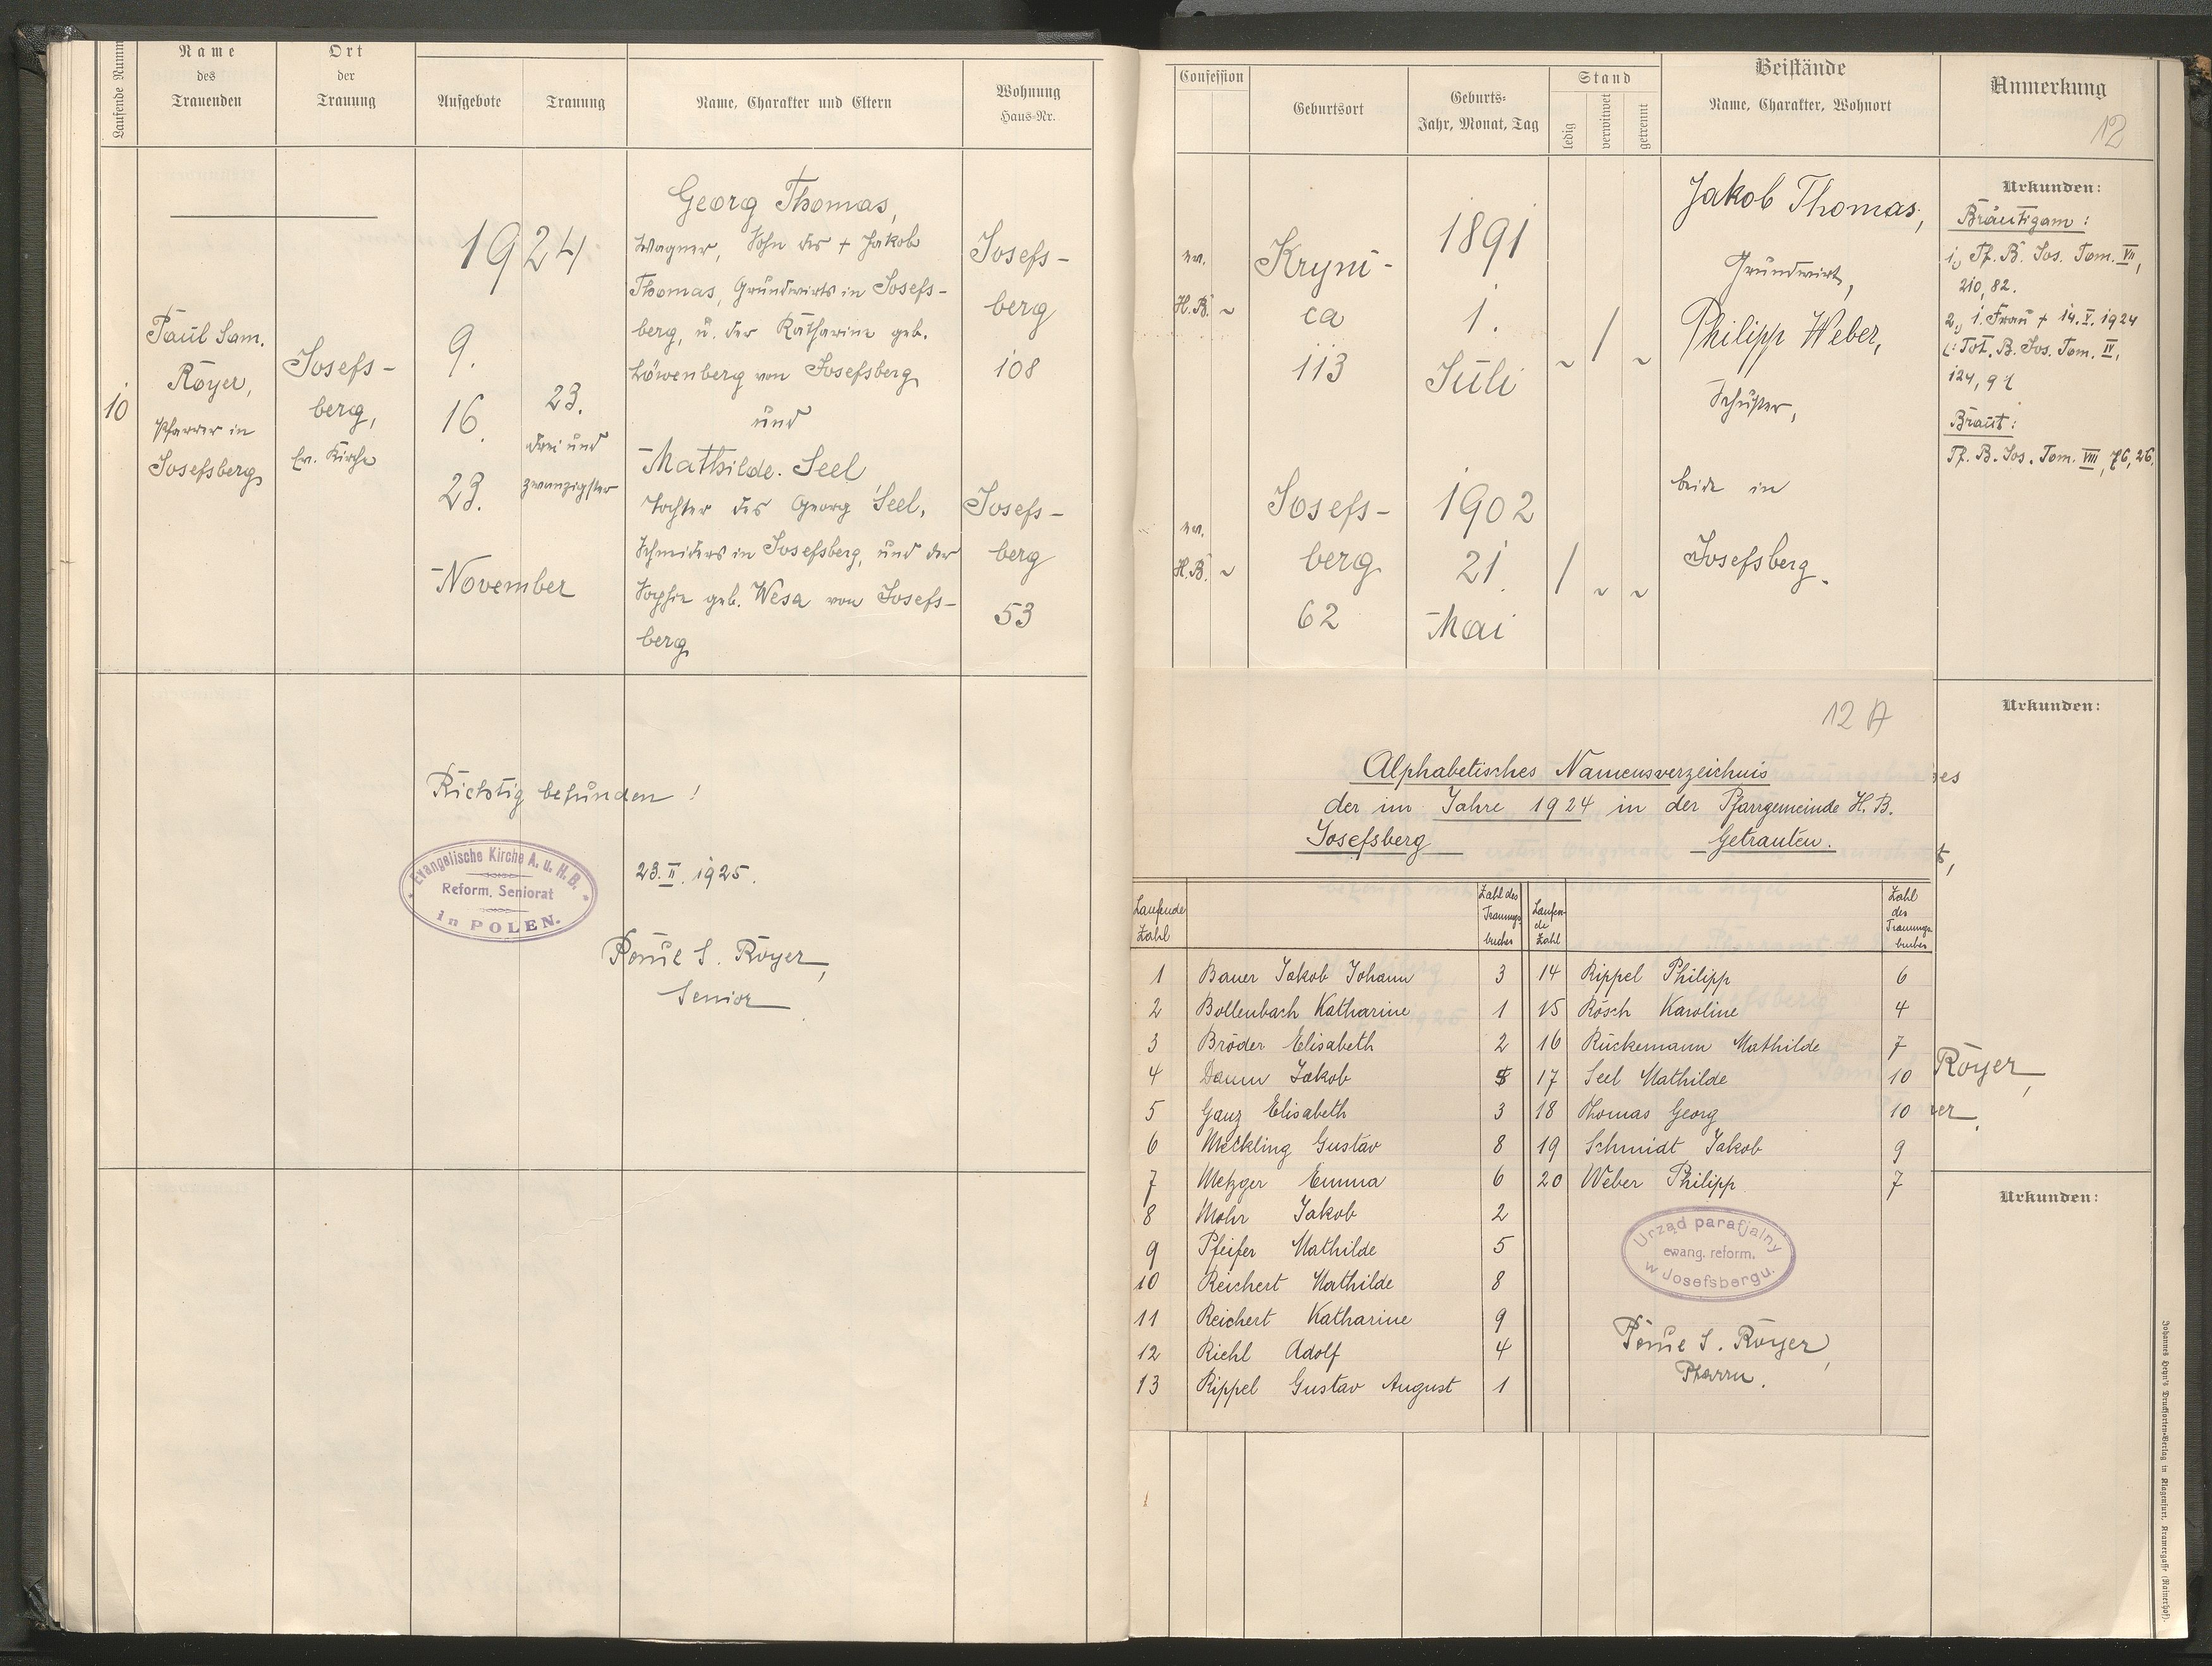 Laufende Numm
Name
des
Trauenden
Ort
der
Trauung
Aufgebote
Trauung
Name, Charakter und Eltern
Wohnung
Haus-Nr.
10
Paul Sam.
Royer,
Pfarrer in
Josefsberg
Josefs-
berg,
Ev. Kirche
1924
9.
16.
23.
November
23.
drei und
zwanzigster
Georg Thomas,
Wagner, Sohn des + Jakob
Thomas, Grundwirts in Josefs-
berg, u. der Katharine geb.
Löwenberg von Josefsberg
und
Mathilde Seel
Tochter des Georg Seel,
Schneiders in Josefsberg, und der
Sophie geb. Wesa von Josefs-
berg
Josefs-
berg
108
Josefs-
berg
53
Richtig befunden!
Evangelische Kirche A. u. H. B.
Reform. Seniorat
in POLEN.
23. II. 1925.
Paul S. Royer,
Senior
Confession
Geburtsort
Geburts-
Jahr, Monat, Tag
Stand
ledig
verwitwet
getrennt
Beistände
Name, Charakter, Wohnort
Anmerkung
12
ev.
H.B. ~
Kryni-
ca
113
1891
1.
Juli
~ / ~
Jakob Thomas,
Grundwirt,
Philipp Weber,
Schuster,
beide in
Josefsberg.
ev.
H.B. ~
Josefs-
berg
62
1902
21.
Mai
/ ~ ~
Urkunden:
Bräutigam:
1., Tf. B. Jos. Tom. VII,
210, 82.
2., 1. Frau + 14. V. 1924
(: Tot. B. Jos. Tom. IV,
124, 9 :(
Braut:
Tf. B. Jos. Tom. VIII, 76, 26.
Urkunden:
es
t,
Royer,
er.
Urkunden:
12 A
Alphabetisches Namensverzeichnis
der im Jahre 1924 in der Pfarrgemeinde H. B.
Josefsberg Getrauten.
Laufende
Zahl
Zahl des
Trauungs-
buches
Laufen-
de
Zahl
Zahl
des
Trauungs-
buches
1 Bauer Jakob Johann 3
2 Bollenbach Katharine 1
3 Bröder Elisabeth 2
4 Daum Jakob 5
5 Ganz Elisabeth 3
6 Meckling Gustav 8
7 Metzger Emma 6
8 Mohr Jakob 2
9 Pfeifer Mathilde 5
10 Reichert Mathilde 8
11 Reichert Katharine 9
12 Riehl Adolf 4
13 Rippel Gustav August 1
14 Rippel Philipp 6
15 Rösch Karoline 4
16 Rückemann Mathilde 7
17 Seel Mathilde 10
18 Thomas Georg 10
19 Schmidt Jakob 9
20 Weber Philipp 7
Urząd parafjalny
ewang. reform.
w Josefsbergu.
Paul S. Royer,
Pfarrer.
Johannes Heyn's Drucksorten-Verlag in Klagenfurt, Kramergasse (Rainerhof).